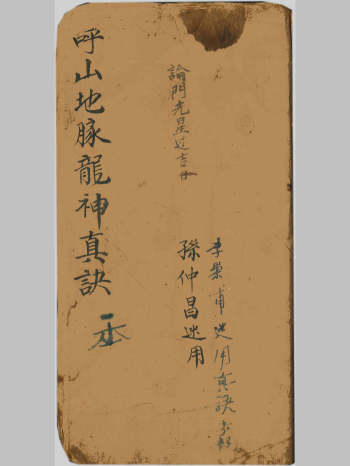 呼山地脉龍神真訣
一本
論門光星近吉
孫仲昌述用
李榮甫述用真訣